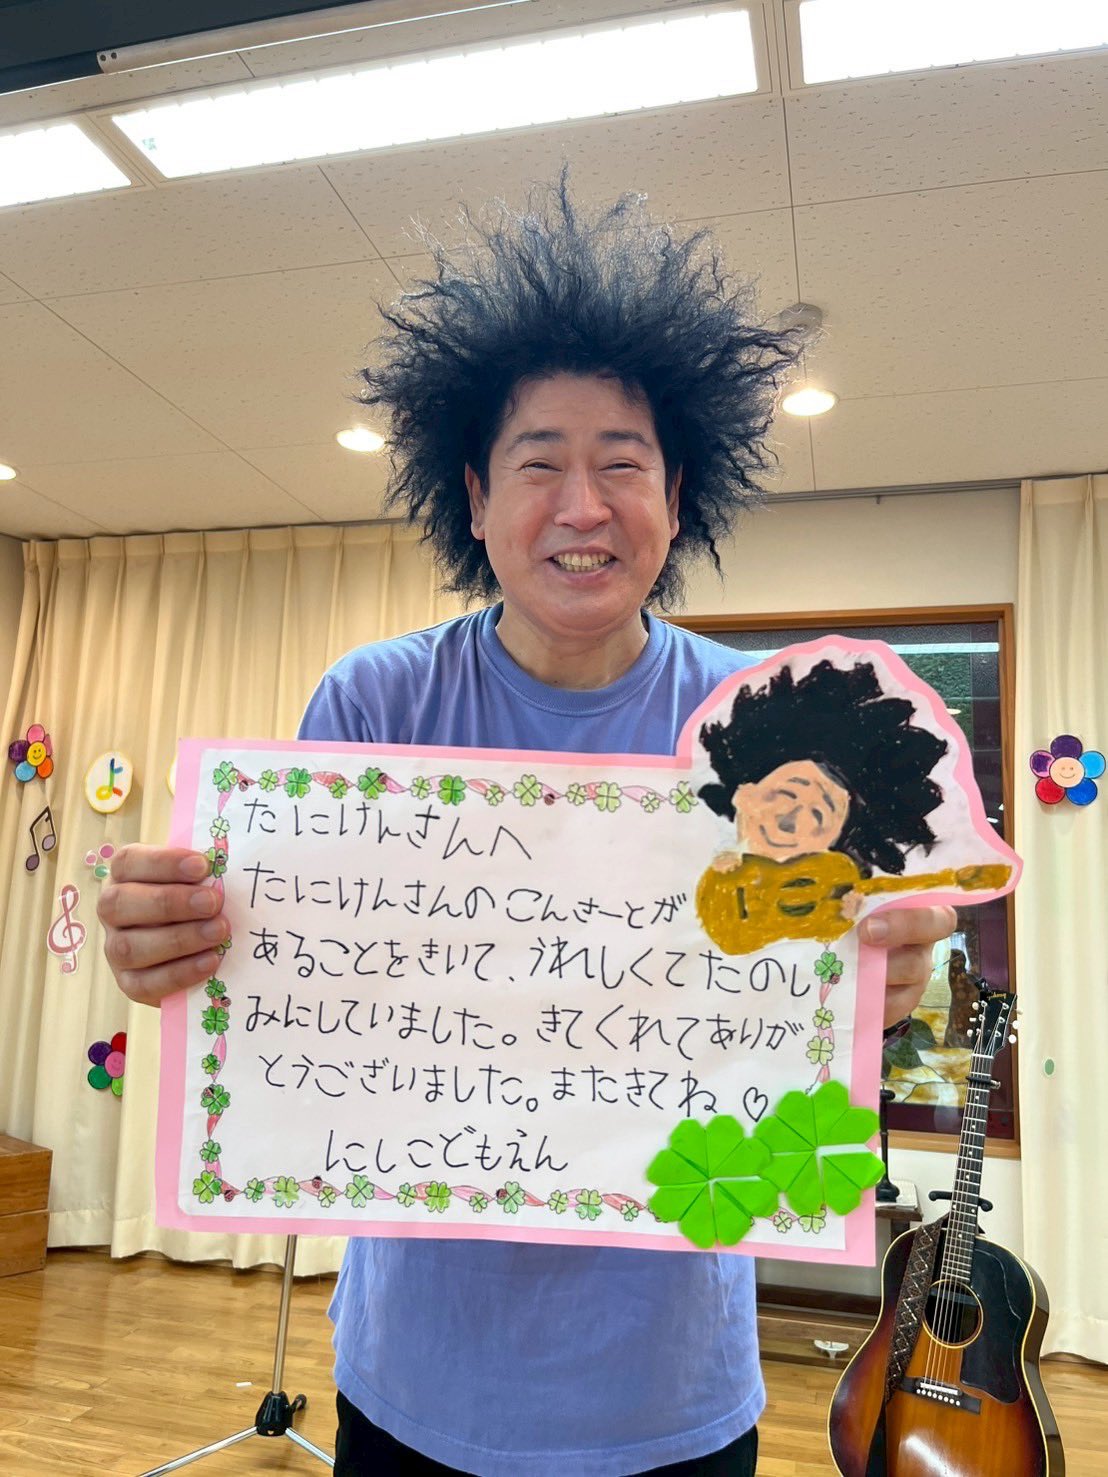 たにけんさんへ
たにけんさんのこんさーとが
あることをきいて、うれしくてたのし
みにしていました。きてくれてありが
とうございました。またきてね♡
にしこどもえん